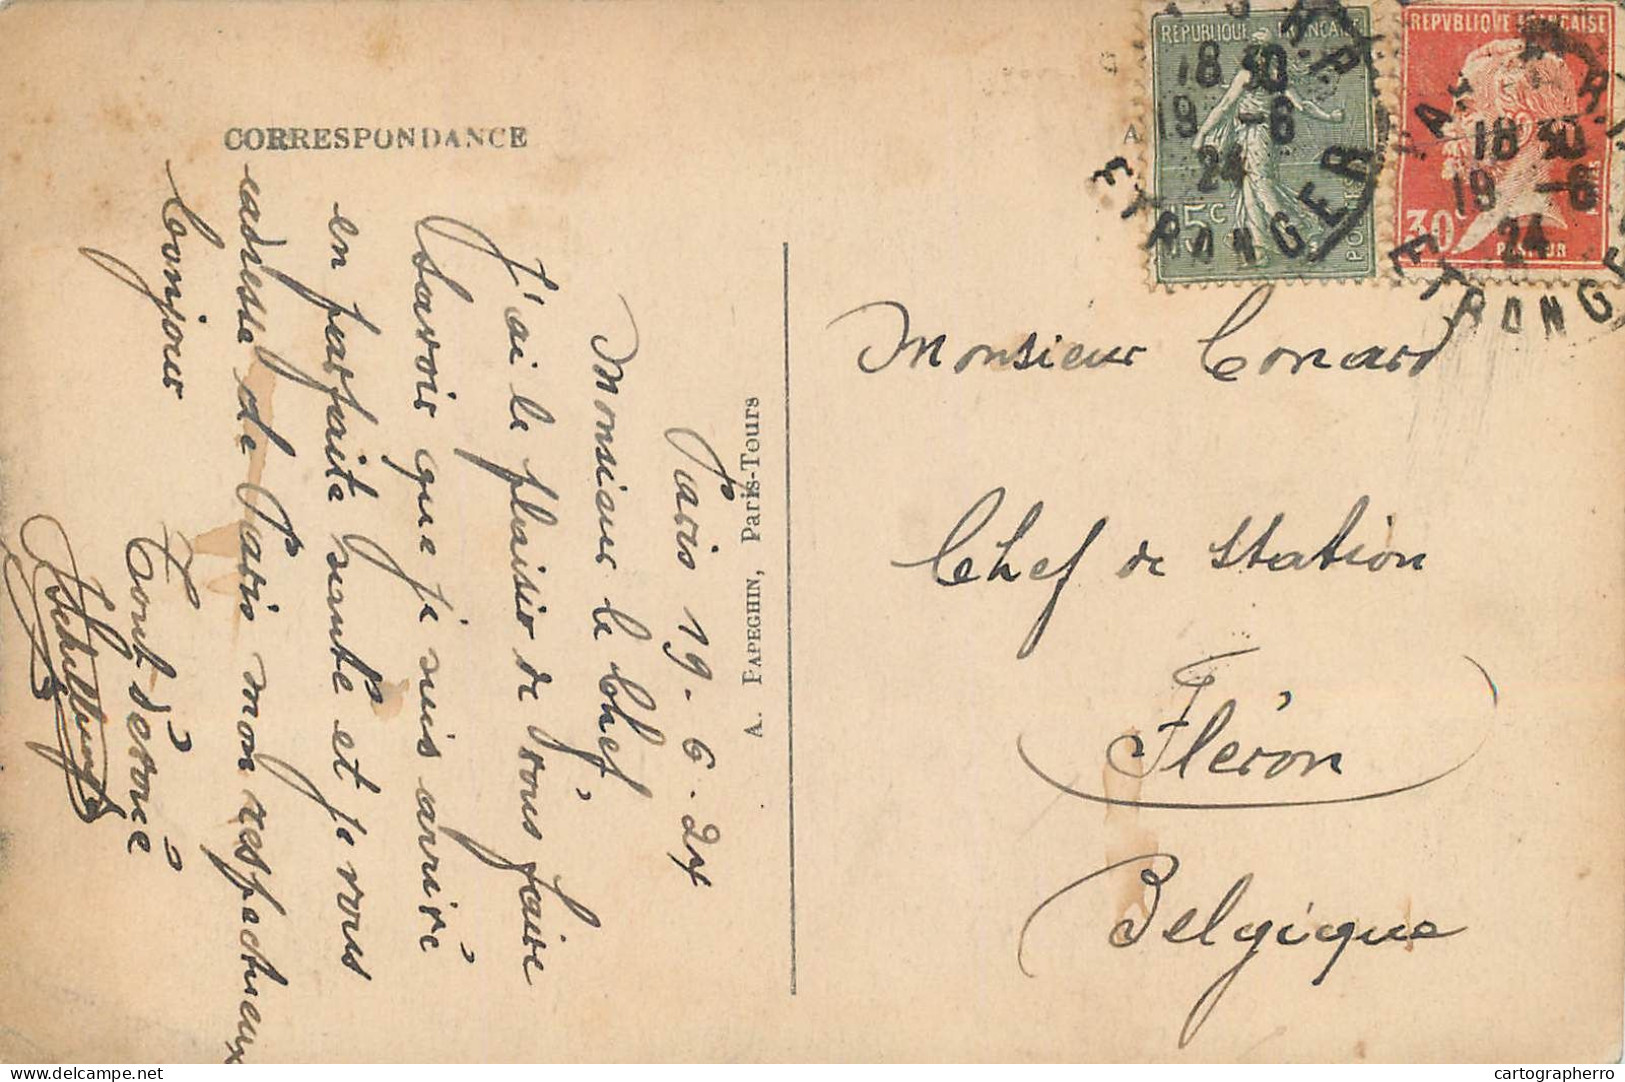 CORRESPONDANCE
Paris 19-6-24
Monsieur le Chef,
J'ai le plaisir de vous faire
savoir que je suis arrivé
en parfaite santé et je vous
adresse de Paris mon respectueux
bonjour
Tout dévoué
A. PAPEGHIN, Paris-Tours
REPUBLIQUE FRANCAISE
15c
POSTES
18 30
19 -6
24
ETRANGER
REPVBLIQVE FRANCAISE
30c
PASTEUR
18 30
19 -6
24
ETRANGE
Monsieur Conard
Chef de Station
Fléron
Belgique
delcampe.net
cartographerro